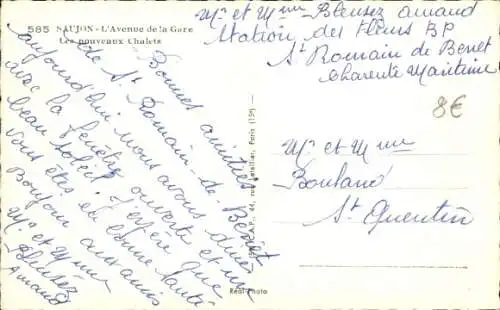 585 SAUJON - L'Avenue de la Gare
Les nouveaux Chalets
Bonnes amitiés
de St Romain-de-Benet
aujourd'hui nous avons diné
avec la fenêtre ouverte et un
beau soleil j'espère que
vous êtes en bonne santé
Bonjour aux amis
Mr et Mme
Bleusez
Armand
Mr et Mme Bleusez Armand
Station des Fleurs BP
St Romain de Benet
Charente Maritime
8€
Mr et Mme
Boutand
St Quentin
C.A.P., 44, rue Letellier, Paris (15e)
Real-Photo